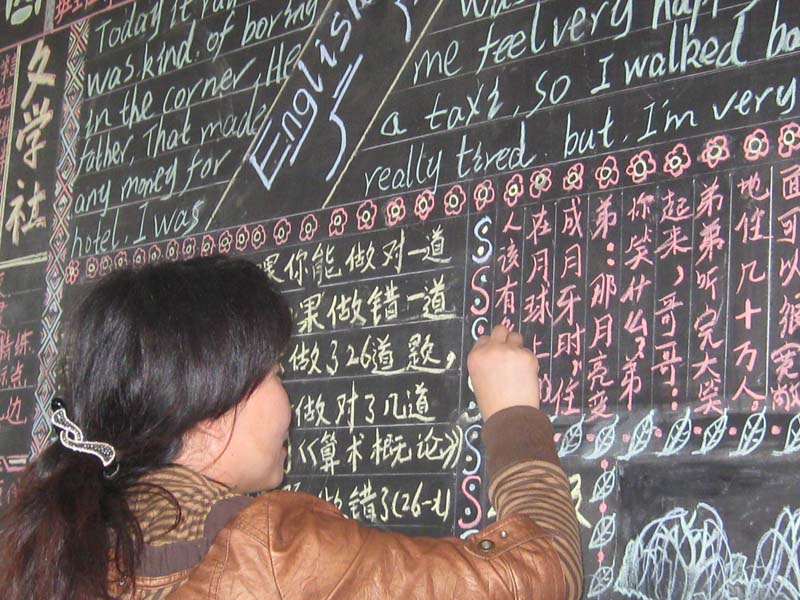 文学社
Today it
was kind. of boring
in the corner, He
father. That made
any money for
hotel. I was
English
was
me feel very happy
a taxi, so I walked
really tired. but. I'm very
果你能做对一道
果做错一道
做了26道题，
做对了几道
《算术概论》
做错了(26-x)
面可以很宽敞
地住几十万人。
弟弟听完大笑
起来，哥哥：
你笑什么？弟
弟：那月亮变
成月牙时，住
在月球上
人该有